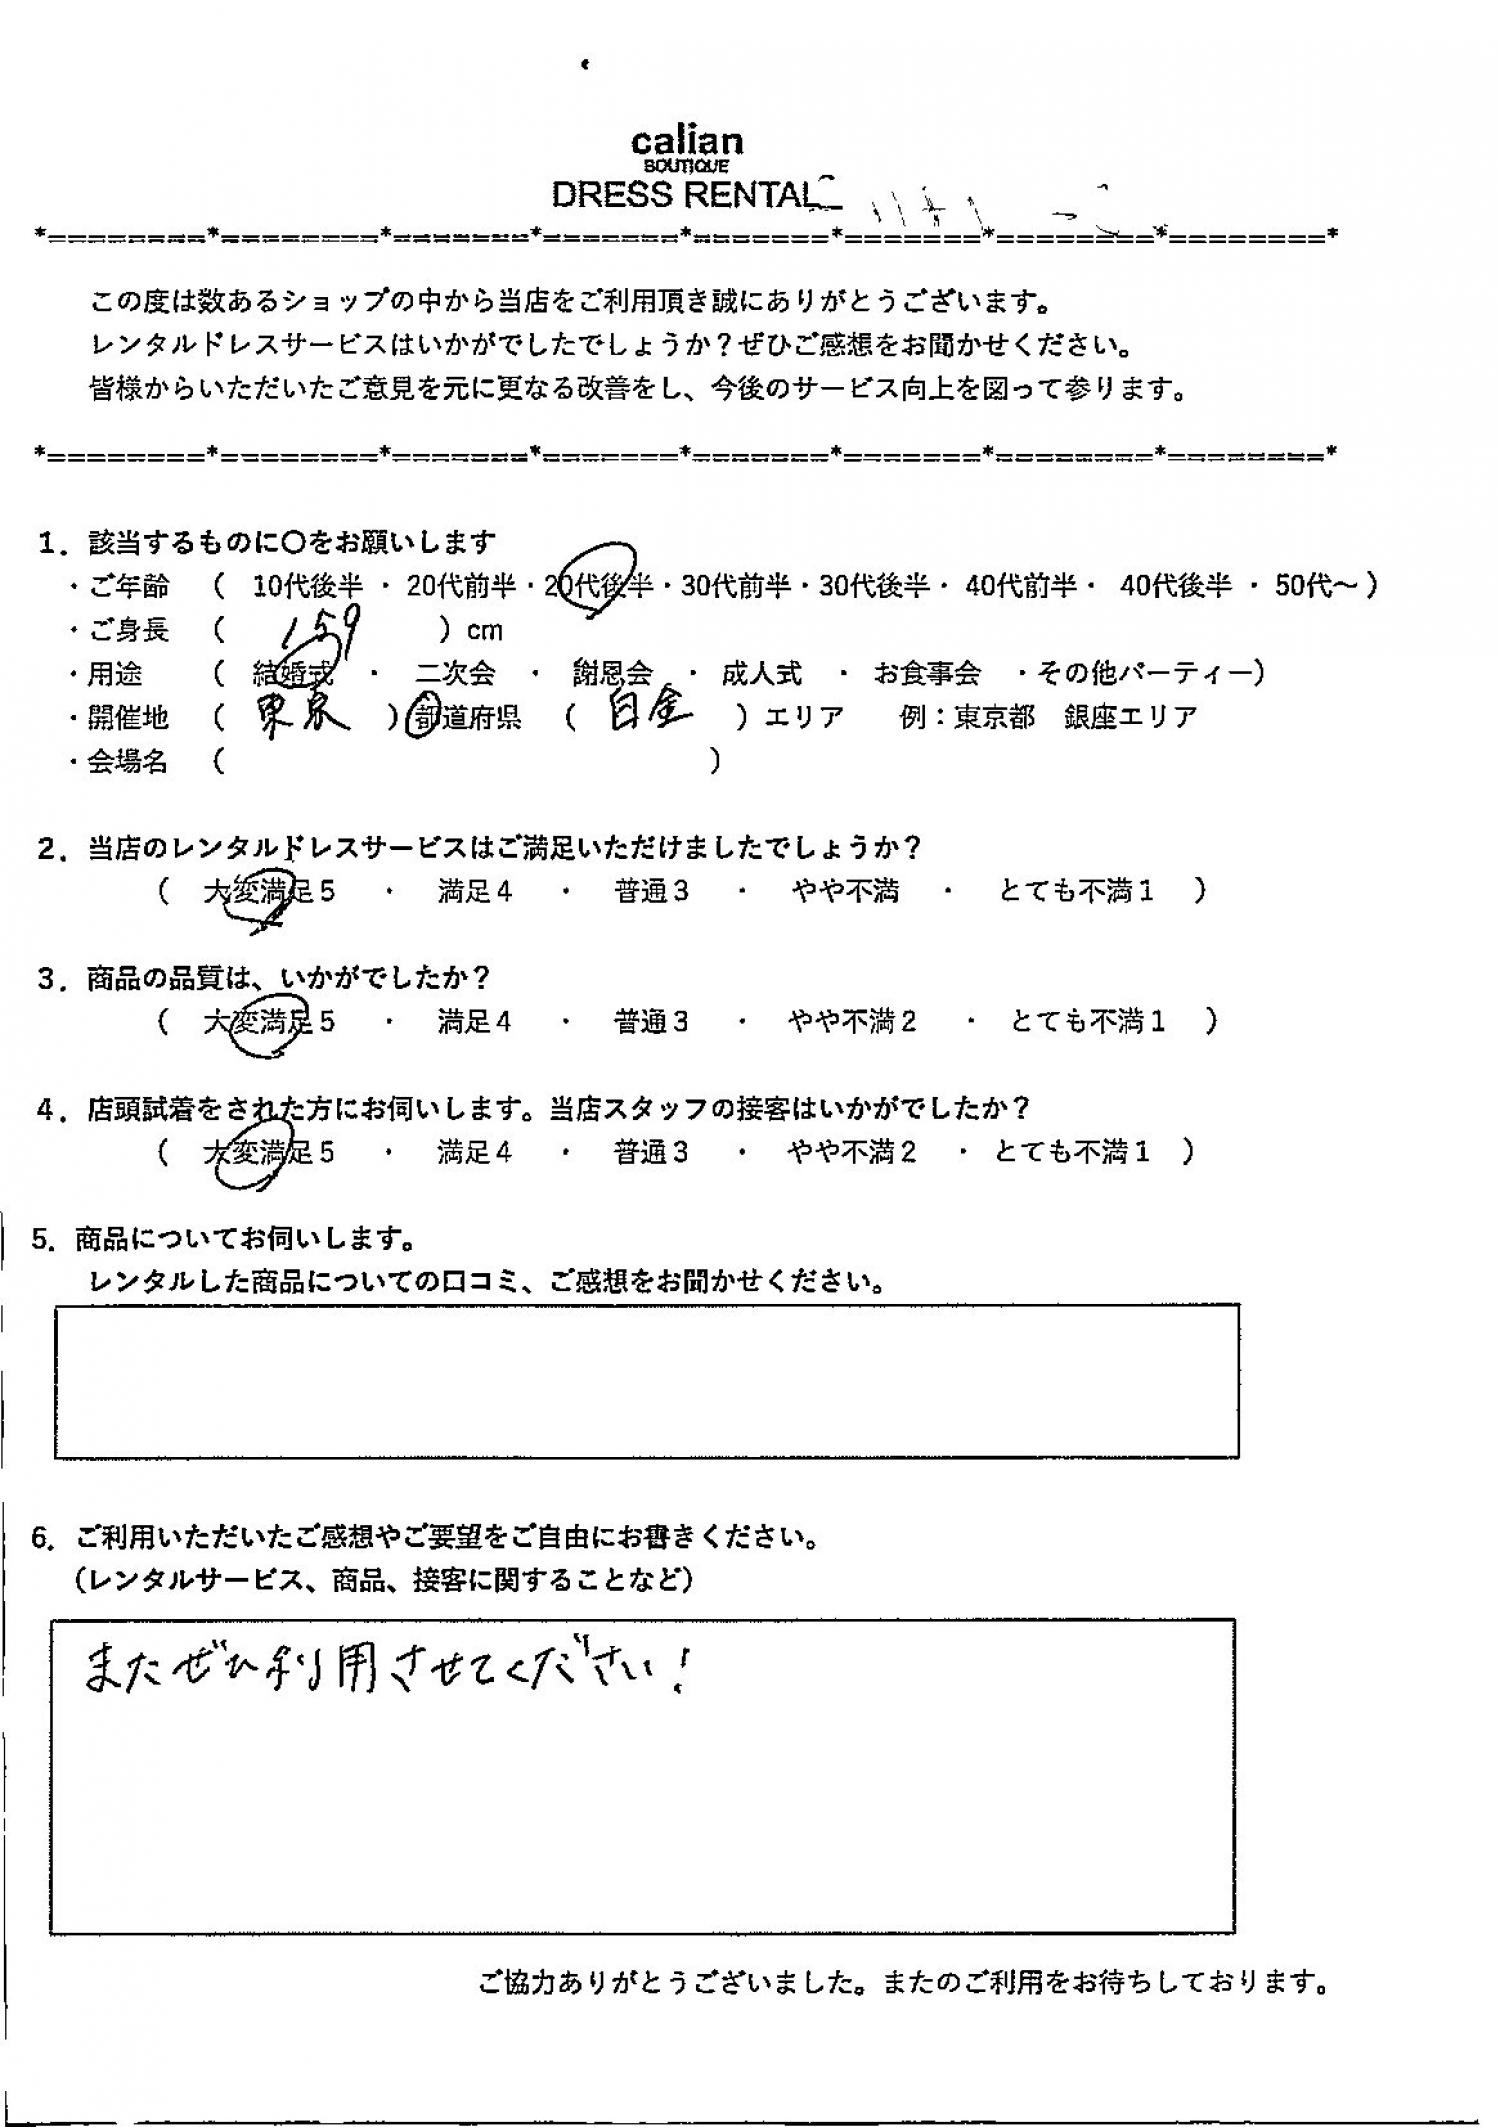 calian
BOUTIQUE
DRESS RENTAL
*========*========*=======*=======*=======*=======*========*========*
この度は数あるショップの中から当店をご利用頂き誠にありがとうございます。
レンタルドレスサービスはいかがでしたでしょうか？ぜひご感想をお聞かせください。
皆様からいただいたご意見を元に更なる改善をし、今後のサービス向上を図って参ります。
*========*========*=======*=======*=======*=======*========*========*
1．該当するものに〇をお願いします
・ご年齢　（　10代後半 ・ 20代前半・20代後半・30代前半・30代後半・ 40代前半・ 40代後半 ・ 50代～）
・ご身長　（　159　）cm
・用途　（　結婚式　・　二次会　・　謝恩会　・　成人式　・　お食事会　・その他パーティー）
・開催地　（　東京　）都道府県　（　白金　）エリア　例：東京都　銀座エリア
・会場名　（　　）
2．当店のレンタルドレスサービスはご満足いただけましたでしょうか？
（　大変満足５　・　満足４　・　普通３　・　やや不満　・　とても不満１　）
3．商品の品質は、いかがでしたか？
（　大変満足５　・　満足４　・　普通３　・　やや不満２　・　とても不満１　）
4．店頭試着をされた方にお伺いします。当店スタッフの接客はいかがでしたか？
（　大変満足５　・　満足４　・　普通３　・　やや不満２　・　とても不満１　）
5．商品についてお伺いします。
レンタルした商品についての口コミ、ご感想をお聞かせください。
6．ご利用いただいたご感想やご要望をご自由にお書きください。
（レンタルサービス、商品、接客に関することなど）
またぜひ利用させてください！
ご協力ありがとうございました。またのご利用をお待ちしております。